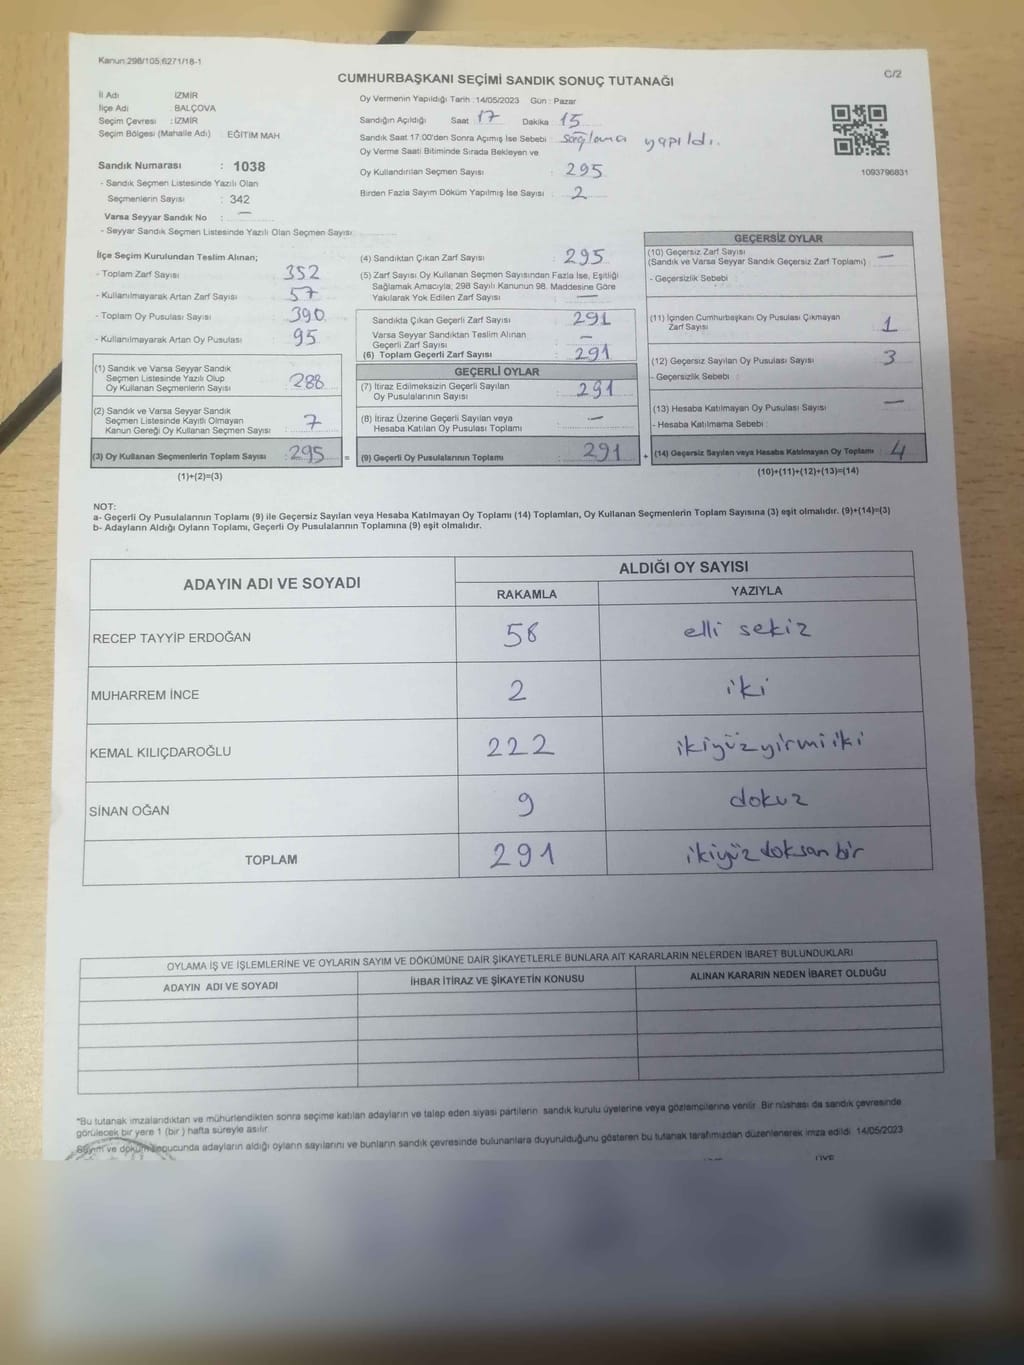 Kanun:298/105;6271/18-1
C/2
CUMHURBAŞKANI SEÇİMİ SANDIK SONUÇ TUTANAĞI
İl Adı İZMİR
İlçe Adı : BALÇOVA
Seçim Çevresi : İZMİR
Seçim Bölgesi (Mahalle Adı) : EĞİTİM MAH
Sandık Numarası : 1038
- Sandık Seçmen Listesinde Yazılı Olan
Seçmenlerin Sayısı : 342
Varsa Seyyar Sandık No : —
- Seyyar Sandık Seçmen Listesinde Yazılı Olan Seçmen Sayısı
Oy Vermenin Yapıldığı Tarih : 14/05/2023 Gün : Pazar
Sandığın Açıldığı Saat 17 Dakika 15
Sandık Saat 17:00'den Sonra Açımış İse Sebebi : sağlama yapıldı.
Oy Verme Saati Bitiminde Sırada Bekleyen ve
Oy Kullandırılan Seçmen Sayısı : 295
Birden Fazla Sayım Döküm Yapılmış İse Sayısı : 2
1093796831
İlçe Seçim Kurulundan Teslim Alınan;
- Toplam Zarf Sayısı 352
- Kullanılmayarak Artan Zarf Sayısı 57
- Toplam Oy Pusulası Sayısı 390
- Kullanılmayarak Artan Oy Pusulası 95
(1) Sandık ve Varsa Seyyar Sandık
Seçmen Listesinde Yazılı Olup
Oy Kullanan Seçmenlerin Sayısı : 288
(2) Sandık ve Varsa Seyyar Sandık
Seçmen Listesinde Kayıtlı Olmayan
Kanun Gereği Oy Kullanan Seçmen Sayısı : 7
(3) Oy Kullanan Seçmenlerin Toplam Sayısı : 295 =
(1)+(2)=(3)
(4) Sandıktan Çıkan Zarf Sayısı : 295
(5) Zarf Sayısı Oy Kullanan Seçmen Sayısından Fazla İse, Eşitliği
Sağlamak Amacıyla, 298 Sayılı Kanunun 98. Maddesine Göre
Yakılarak Yok Edilen Zarf Sayısı : —
Sandıkta Çıkan Geçerli Zarf Sayısı : 291
Varsa Seyyar Sandıktan Teslim Alınan
Geçerli Zarf Sayısı : —
(6) Toplam Geçerli Zarf Sayısı : 291
GEÇERLİ OYLAR
(7) İtiraz Edilmeksizin Geçerli Sayılan
Oy Pusulalarının Sayısı : 291
(8) İtiraz Üzerine Geçerli Sayılan veya
Hesaba Katılan Oy Pusulası Toplamı : —
(9) Geçerli Oy Pusulalarının Toplamı : 291 +
GEÇERSİZ OYLAR
(10) Geçersiz Zarf Sayısı
(Sandık ve Varsa Seyyar Sandık Geçersiz Zarf Toplamı) : —
- Geçersizlik Sebebi :
(11) İçinden Cumhurbaşkanı Oy Pusulası Çıkmayan
Zarf Sayısı : 1
(12) Geçersiz Sayılan Oy Pusulası Sayısı : 3
- Geçersizlik Sebebi :
(13) Hesaba Katılmayan Oy Pusulası Sayısı : —
- Hesaba Katılmama Sebebi :
(14) Geçersiz Sayılan veya Hesaba Katılmayan Oy Toplamı : 4
(10)+(11)+(12)+(13)=(14)
NOT:
a- Geçerli Oy Pusulalarının Toplamı (9) ile Geçersiz Sayılan veya Hesaba Katılmayan Oy Toplamı (14) Toplamları, Oy Kullanan Seçmenlerin Toplam Sayısına (3) eşit olmalıdır. (9)+(14)=(3)
b- Adayların Aldığı Oyların Toplamı, Geçerli Oy Pusulalarının Toplamına (9) eşit olmalıdır.
ADAYIN ADI VE SOYADI ALDIĞI OY SAYISI
RAKAMLA YAZIYLA
RECEP TAYYİP ERDOĞAN 58 elli sekiz
MUHARREM İNCE 2 iki
KEMAL KILIÇDAROĞLU 222 ikiyüzyirmiiki
SİNAN OĞAN 9 dokuz
TOPLAM 291 ikiyüzdoksanbir
OYLAMA İŞ VE İŞLEMLERİNE VE OYLARIN SAYIM VE DÖKÜMÜNE DAİR ŞİKAYETLERLE BUNLARA AİT KARARLARIN NELERDEN İBARET BULUNDUKLARI
ADAYIN ADI VE SOYADI İHBAR İTİRAZ VE ŞİKAYETİN KONUSU ALINAN KARARIN NEDEN İBARET OLDUĞU
*Bu tutanak imzalandıktan ve mühürlendikten sonra seçime katılan adayların ve talep eden siyasi partilerin sandık kurulu üyelerine veya gözlemcilerine verilir. Bir nüshası da sandık çevresinde
görülecek bir yere 1 (bir) hafta süreyle asılır.
Sayım ve döküm sonucunda adayların aldığı oyların sayılarını ve bunların sandık çevresinde bulunanlara duyurulduğunu gösteren bu tutanak tarafımızdan düzenlenerek imza edildi. 14/05/2023
ÜYE